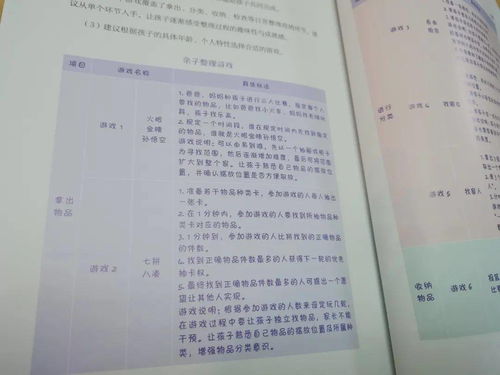 议从单个环节入手，让孩子逐渐感受整理过程的趣味性与成就感。
（3）建议根据孩子的具体年龄、个人特性选择合适的游戏。
亲子整理游戏
项目
游戏名称
具体做法
拿出
物品
游戏1
火眼
金睛
孙悟空
1. 爸爸、妈妈和孩子进行三人比赛，指定每个人
要找的物品，比如爸爸找小火车，妈妈找
具，孩子找乐高。
2. 规定一个时间段，谁在规定时间内先找到指定
的物品，谁就是火眼金睛孙悟空。
游戏说明：可以由易到难，先以一个抽屉或柜子
为寻找范围，然后逐渐增加难度，最后可将范围
扩大到整个家。让孩子熟悉自己物品的摆放位
置，并确认摆放位置是否方便取放。
游戏2
七拼
八凑
1. 准备若干物品种类卡，参加游戏的人每人抽出
一张卡。
2. 在1分钟内，参加游戏的人要找到所抽物品种
类卡对应的物品。
3. 1分钟到，参加游戏的人比将找到的正确物品
的件数。
4. 找到正确物品件数最多的人获得下一轮的优先
抽卡权。
5. 最终找到正确物品件数最多的人可提出一个愿
望让其他人实现。
游戏说明：根据参加游戏的人数来设定玩几轮，
在游戏过程中要让孩子独立找物品，家长不能
干预。让孩子熟悉自己物品的摆放位置及所属种
类，增强物品分类意识。
游戏3
进行
分类
游戏4
游戏5
找家人
收纳
物品
游戏6